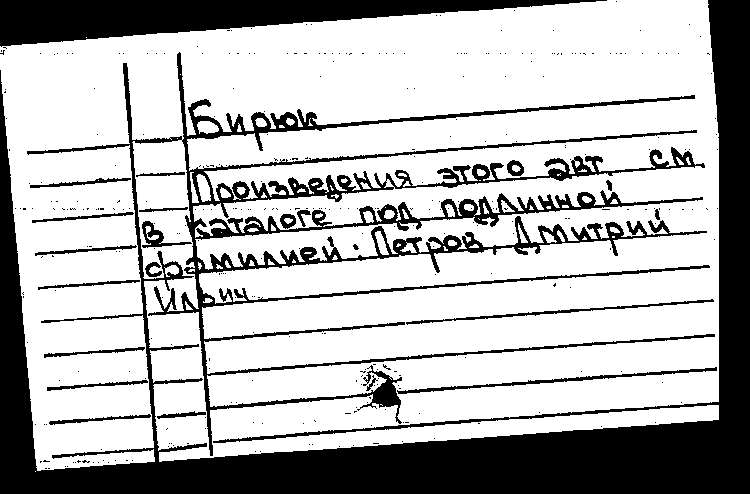 Бирюк
Произведения этого авт. см.
в каталоге под подлинной
фамилией: Петров, Дмитрий
Ильич